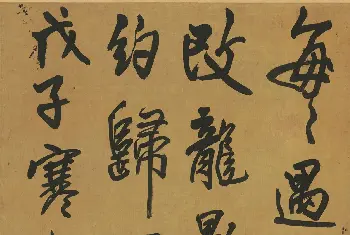 每〻遇
龍
約歸
戊子寒